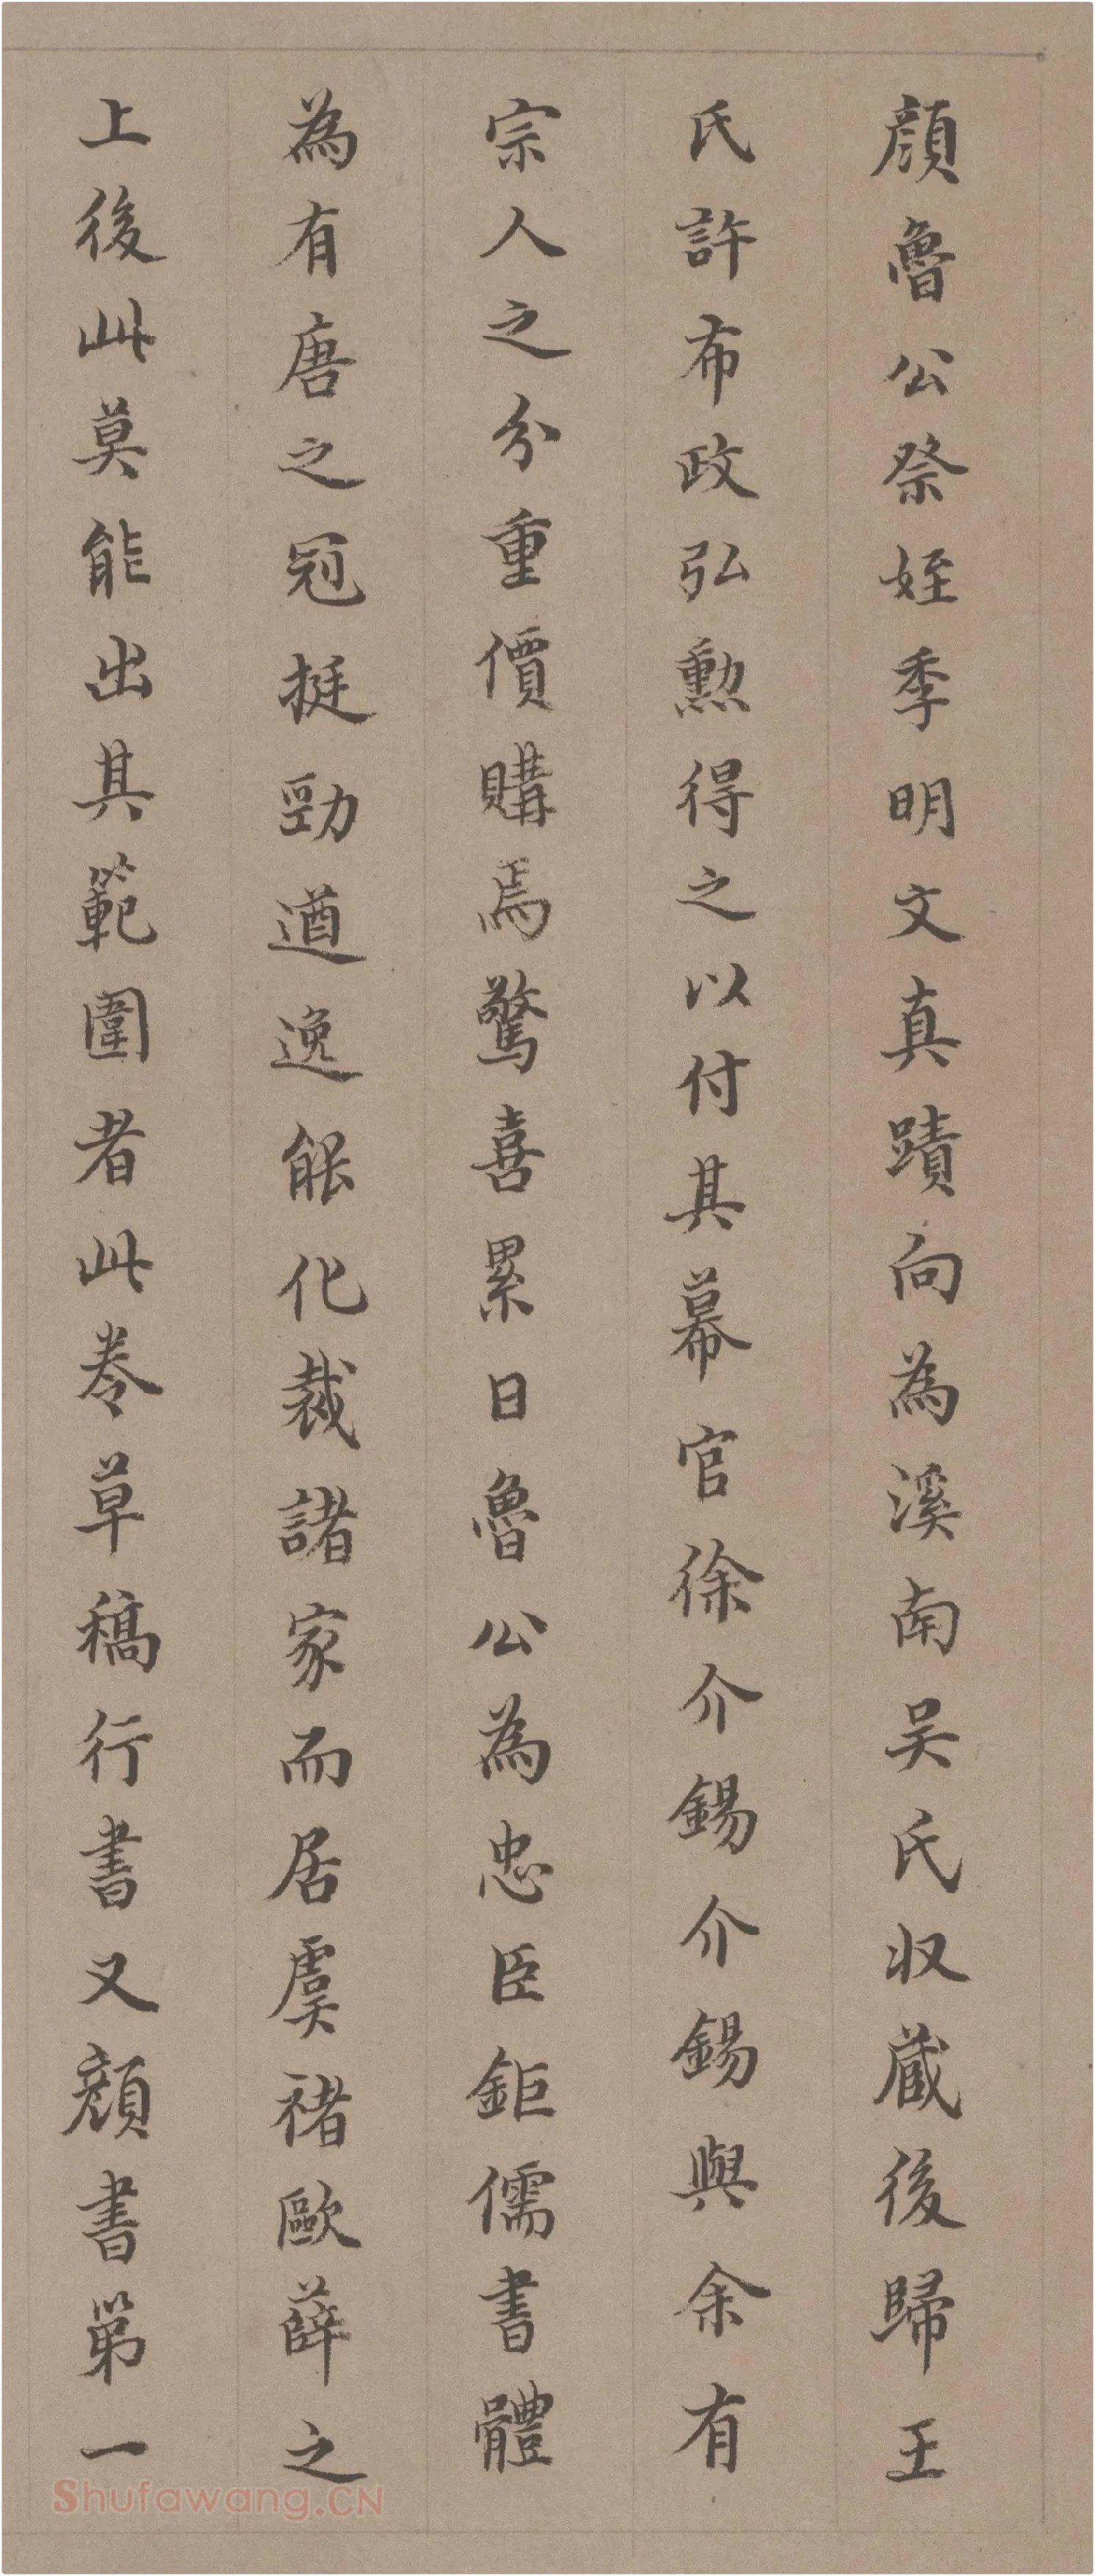 顔魯公祭姪季明文真蹟向為溪南吴氏収蔵後歸王
氏許布政弘勲得之以付其幕官徐介錫介錫與余有
宗人之分重價購焉驚喜累日魯公為忠臣鉅儒書體
為有唐之冠挺勁遒逸能化裁諸家而居虞禇歐薛之
上後此莫能出其範圍者此卷草稿行書又顔書第一
Shufawang.CN